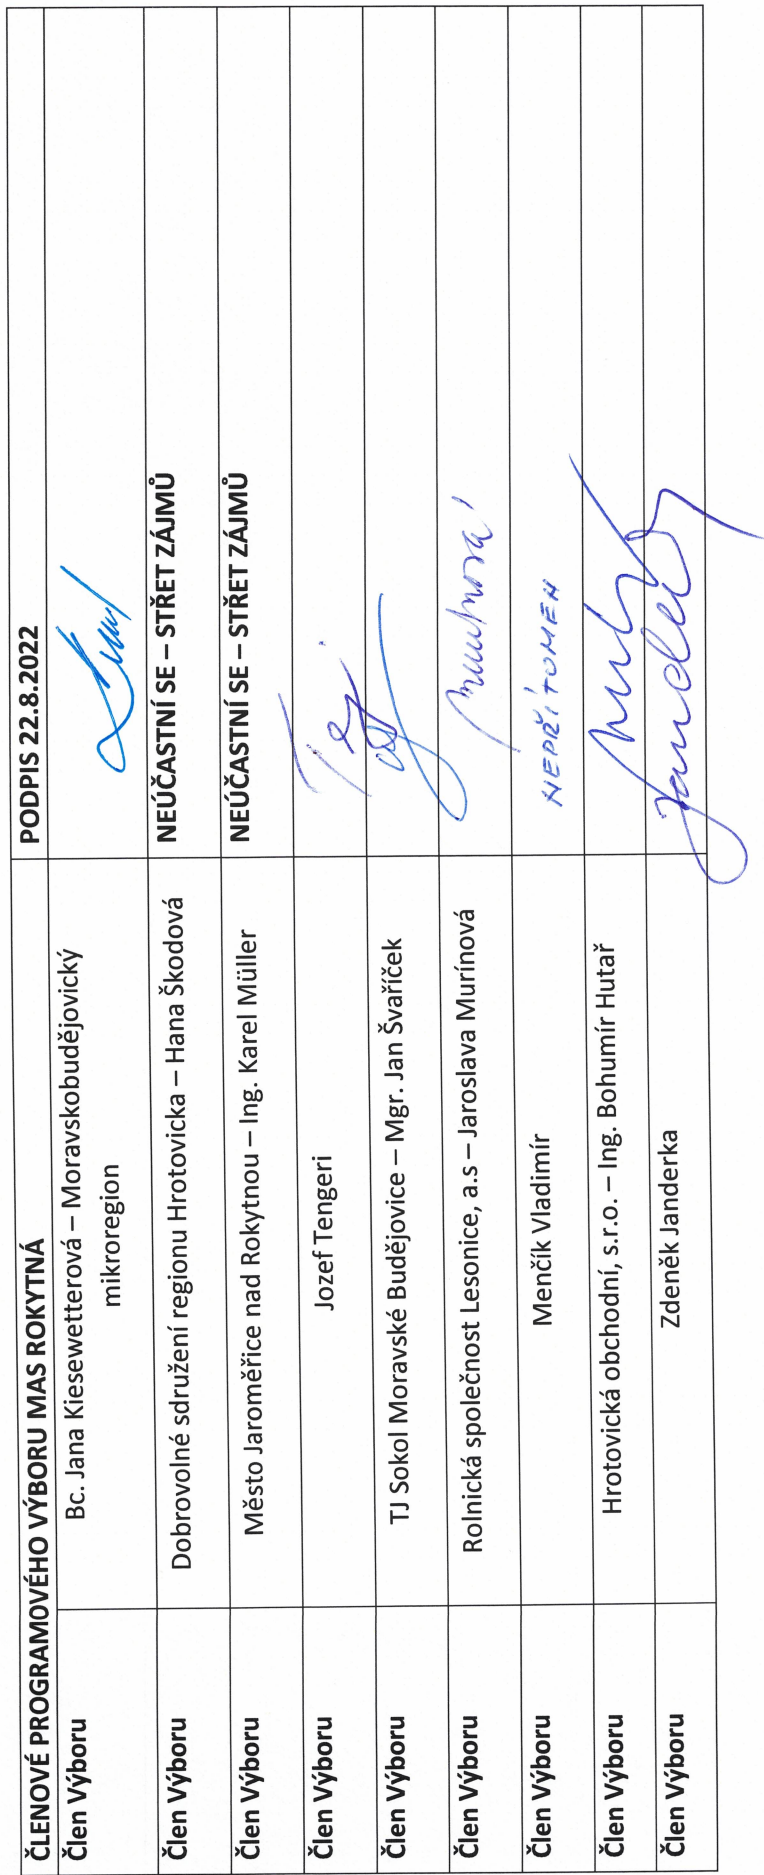 ČLENOVÉ PROGRAMOVÉHO VÝBORU MAS ROKYTNÁ PODPIS 22.8.2022
Člen Výboru Bc. Jana Kiesewetterová – Moravskobudějovický
mikroregion
Člen Výboru Dobrovolné sdružení regionu Hrotovicka – Hana Škodová NEÚČASTNÍ SE – STŘET ZÁJMŮ
Člen Výboru Město Jaroměřice nad Rokytnou – Ing. Karel Müller NEÚČASTNÍ SE – STŘET ZÁJMŮ
Člen Výboru Jozef Tengeri
Člen Výboru TJ Sokol Moravské Budějovice – Mgr. Jan Švaříček
Člen Výboru Rolnická společnost Lesonice, a.s – Jaroslava Murínová
Člen Výboru Menčík Vladimír NEPŘÍTOMEN
Člen Výboru Hrotovická obchodní, s.r.o. – Ing. Bohumír Hutař
Člen Výboru Zdeněk Janderka